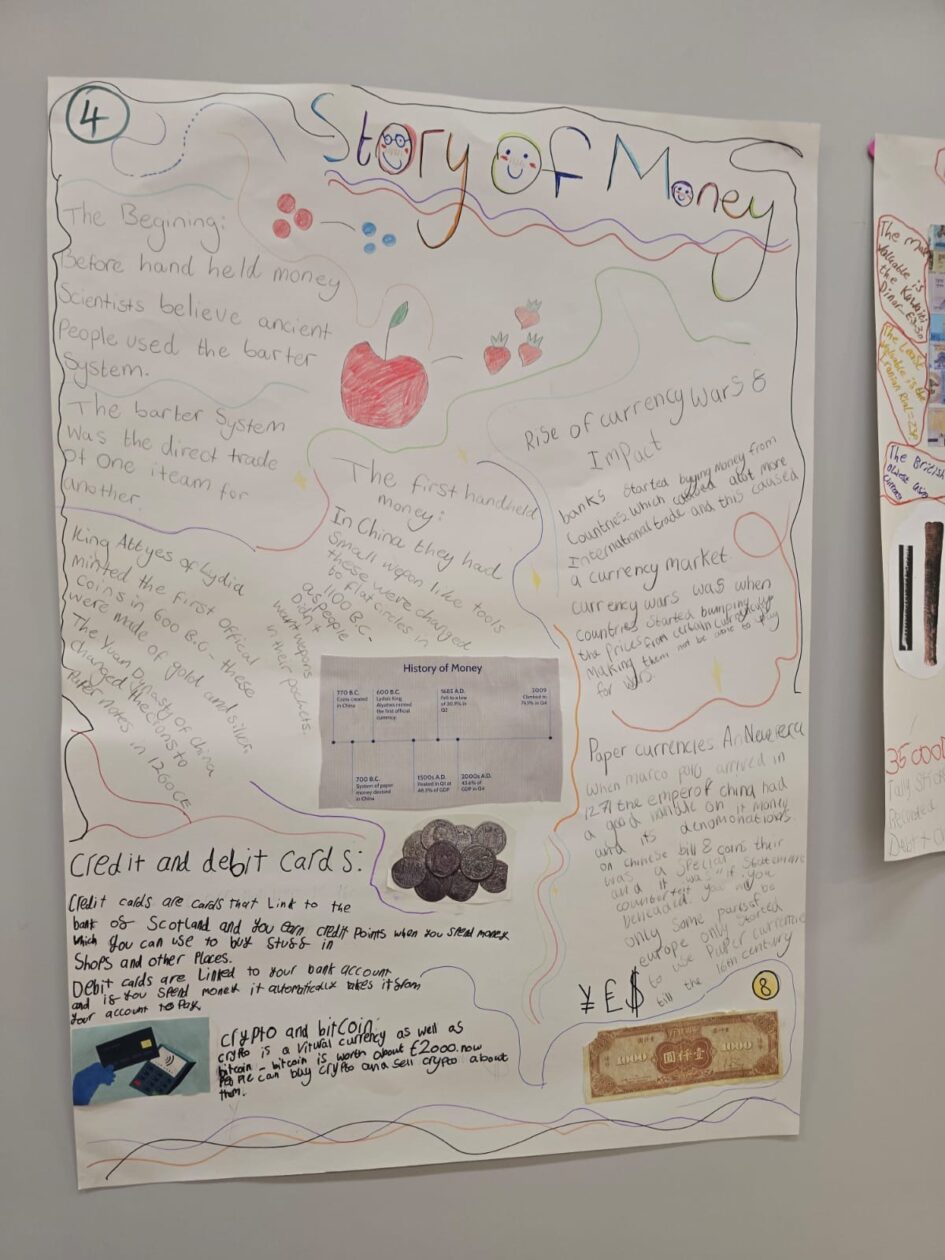 4
Story of Money
The Begining:
Before hand held money
Scientists believe ancient
People used the barter
System.
The barter System
was the direct trade
of one iteam for
another.
King Attyes of Lydia
minted the first official
coins in 600 B.C - these
were made of gold and silver
The Yuan Dynasty of China
changed the coins to
Paper notes in 1260 CE
The first handheld
money:
In China they had
Small wepon like tools
these were changed
to flat circles in
1100 B.C.
as people
Didn't
want weapons
in their pockets.
History of Money
770 B.C.
Coins created
in China
600 B.C.
Lydia's King
Alyattes minted
the first official
currency.
1685 A.D.
Fell to a low
of
Q2
2009
Climbed to
in Q4
700 B.C.
System of paper
money devised
in China
1500s A.D.
in Q1 at
of GDP
2000s A.D.
of
GDP in Q4
Rise of currency Wars &
Impact
banks Started buying money from
Countries which caused alot more
International trade and this caused
a currency market.
currency wars was when
countries started bumping
the prices from certain
Making them not be able to pay
for wars.
Paper currencies: A New era
When marco polo arrived in
1271 the emperor of china had
a good handle on it money
and its denomonations.
on chinese bill & coins their
was a special
and it was "if you
counterfeit you
beheaded.
only some parts of
europe only started
to use Paper currencie
till the 16th century
¥ £ $
8
1000
圓仟壹
1000
Credit and debit cards:
Credit cards are cards that Link to the
bank of Scotland and you earn credit points when you spend money
which you can use to buy stuff in
Shops and other Places.
Debit cards are Linked to your bank account
and if you spend money it automatically takes it from
your account to Pay
crypto and bitcoin:
crypto is a vitural currency as well as
bitcoin - bitcoin is worth about £2000. now
People can buy crypto and sell crypto about
them.
The most
valuable is
the Kuwaiti
Dinar = £3.30
The Least
valuable is the
Iranian Rial =
The British
oldest
currency
35000
Recorded
Debt